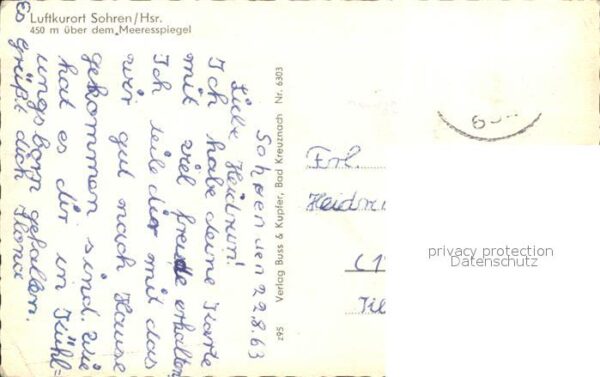 Luftkurort Sohren/Hsr.
450 m über dem Meeresspiegel
Sohren den 22.8.63
Liebe Heidrun!
Ich habe deine Karte
mit viel freude erhalten
Ich teile dir mit das
wir gut nach Hause
gekommen sind. Wie
hat es dir in Kühl=
ungsborn gefallen.
Es grüßt dich Ilona
z95 Verlag Buss & Kupfer, Bad Kreuznach Nr. 6303
Frl.
Heidru
privacy protection
Datenschutz